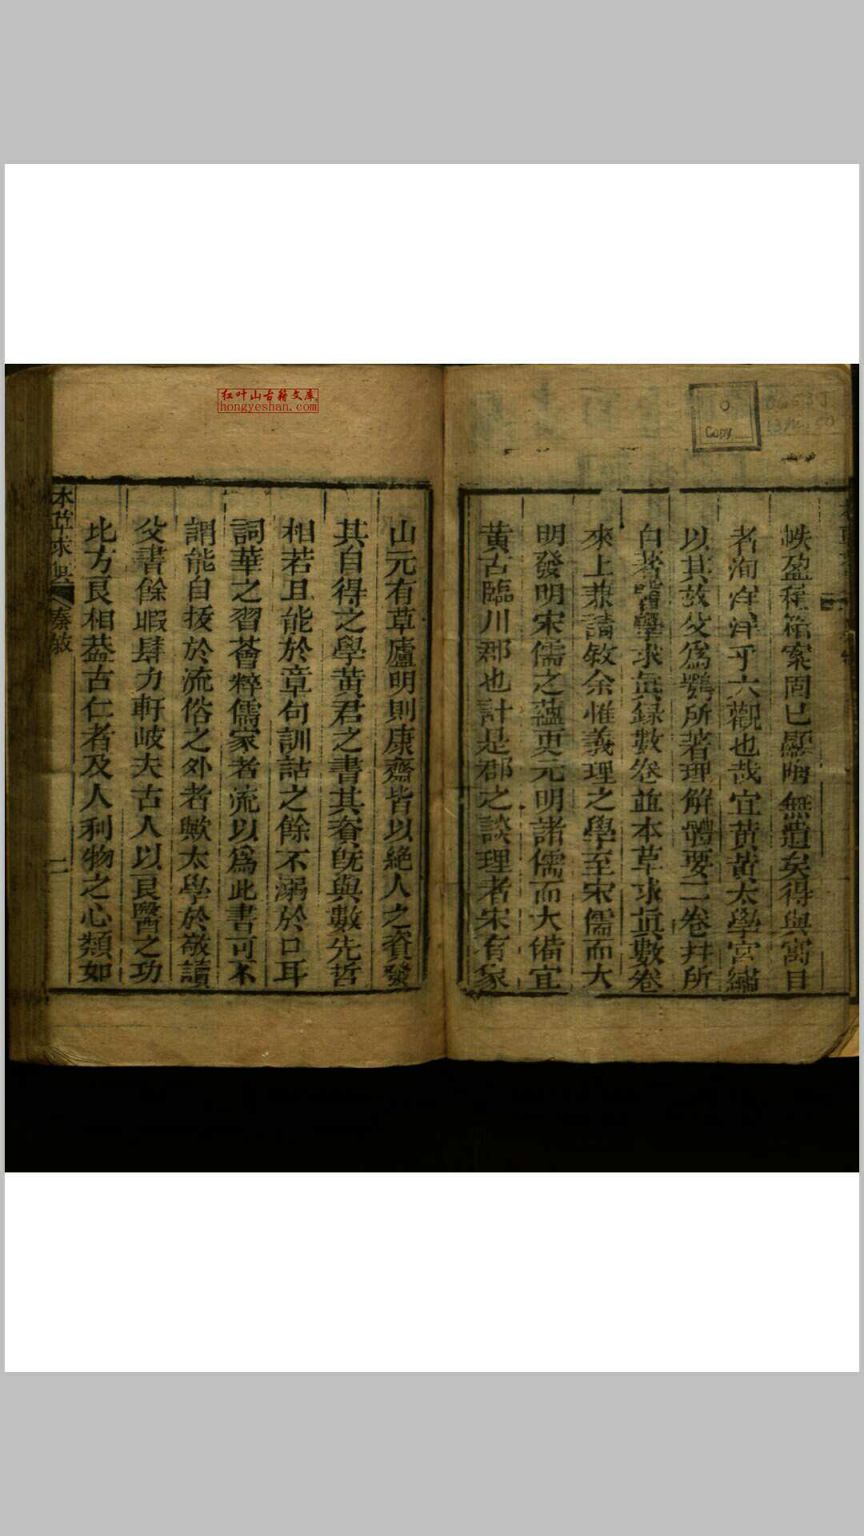 红叶山古籍文库
hongyeshan.com
Copy
帙盈種箱案固已靡隋無遺矣得與寓目
者洵洋洋乎大觀也哉宜黃黃太學宮繡
以其故父爲鸚所著理解體要二卷幷所
自著醫學求眞錄數卷並本草求眞數卷
來上兼請敘余惟義理之學至宋儒而大
明發明宋儒之蘊更元明諸儒而大備宜
黃古臨川郡也計是郡之談理者宋有象
山元有草廬明則康齋皆以絕人之資發
其自得之學黃君之書其脊旣與數先哲
相若且能於章句訓詁之餘不溺於口耳
詞華之習薈粹儒家者流以爲此書可不
謂能自拔於流俗之外者歟太學於敬讀
父書餘暇肆力軒岐夫古人以良醫之功
比方良相葢古仁者及人利物之心類如
本草求眞 秦敘 二